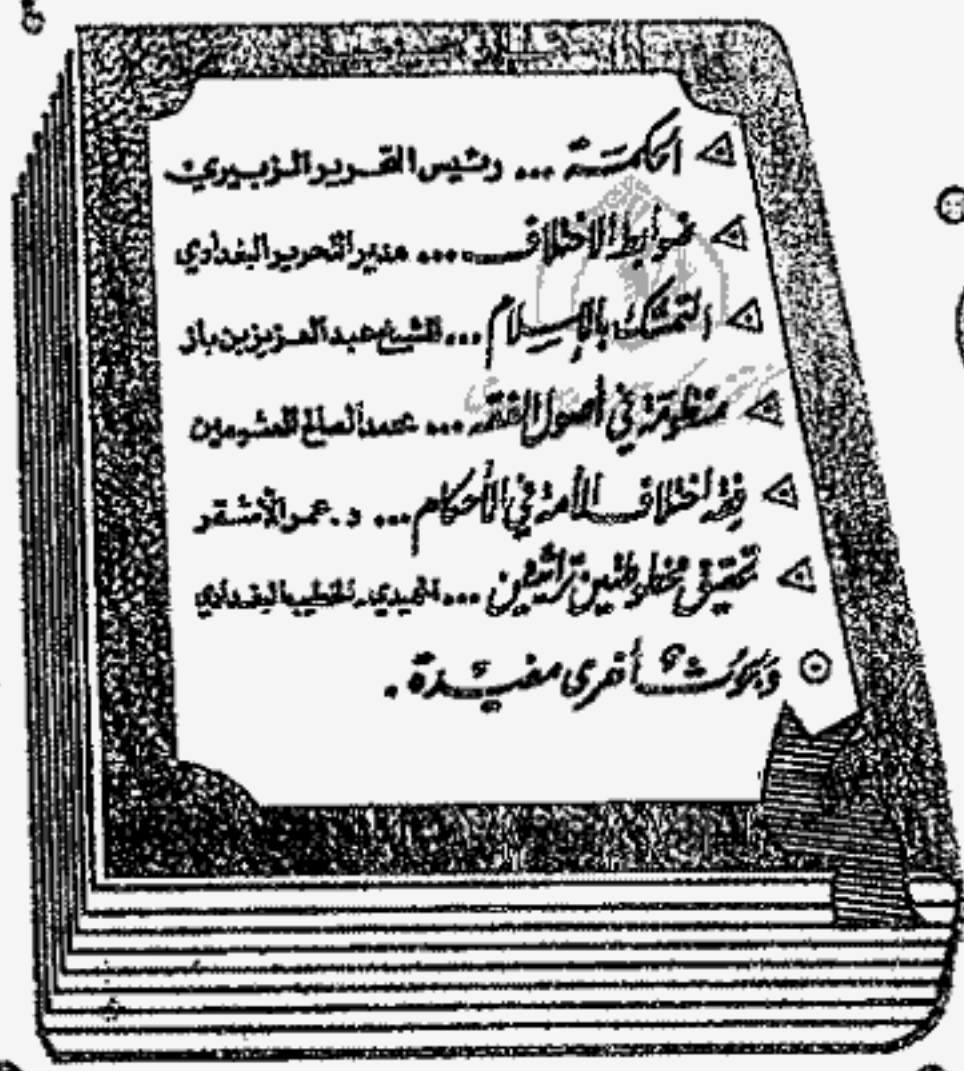 الحكمة ... رئيس التحرير الزبيري
ضوابط الاختلاف ... مدير التحرير البغدادي
التمسك بالإسلام ... للشيخ عبد العزيز بن باز
منظومة في أصول الفقه ... محمد الصالح العثيمين
فقه اختلاف الأمة في الأحكام ... د. عمر الأشقر
تحقيق مخطوطتين تراثيتين ... الحميدي - الخطيب البغدادي
وبحوث أخرى مفيدة .